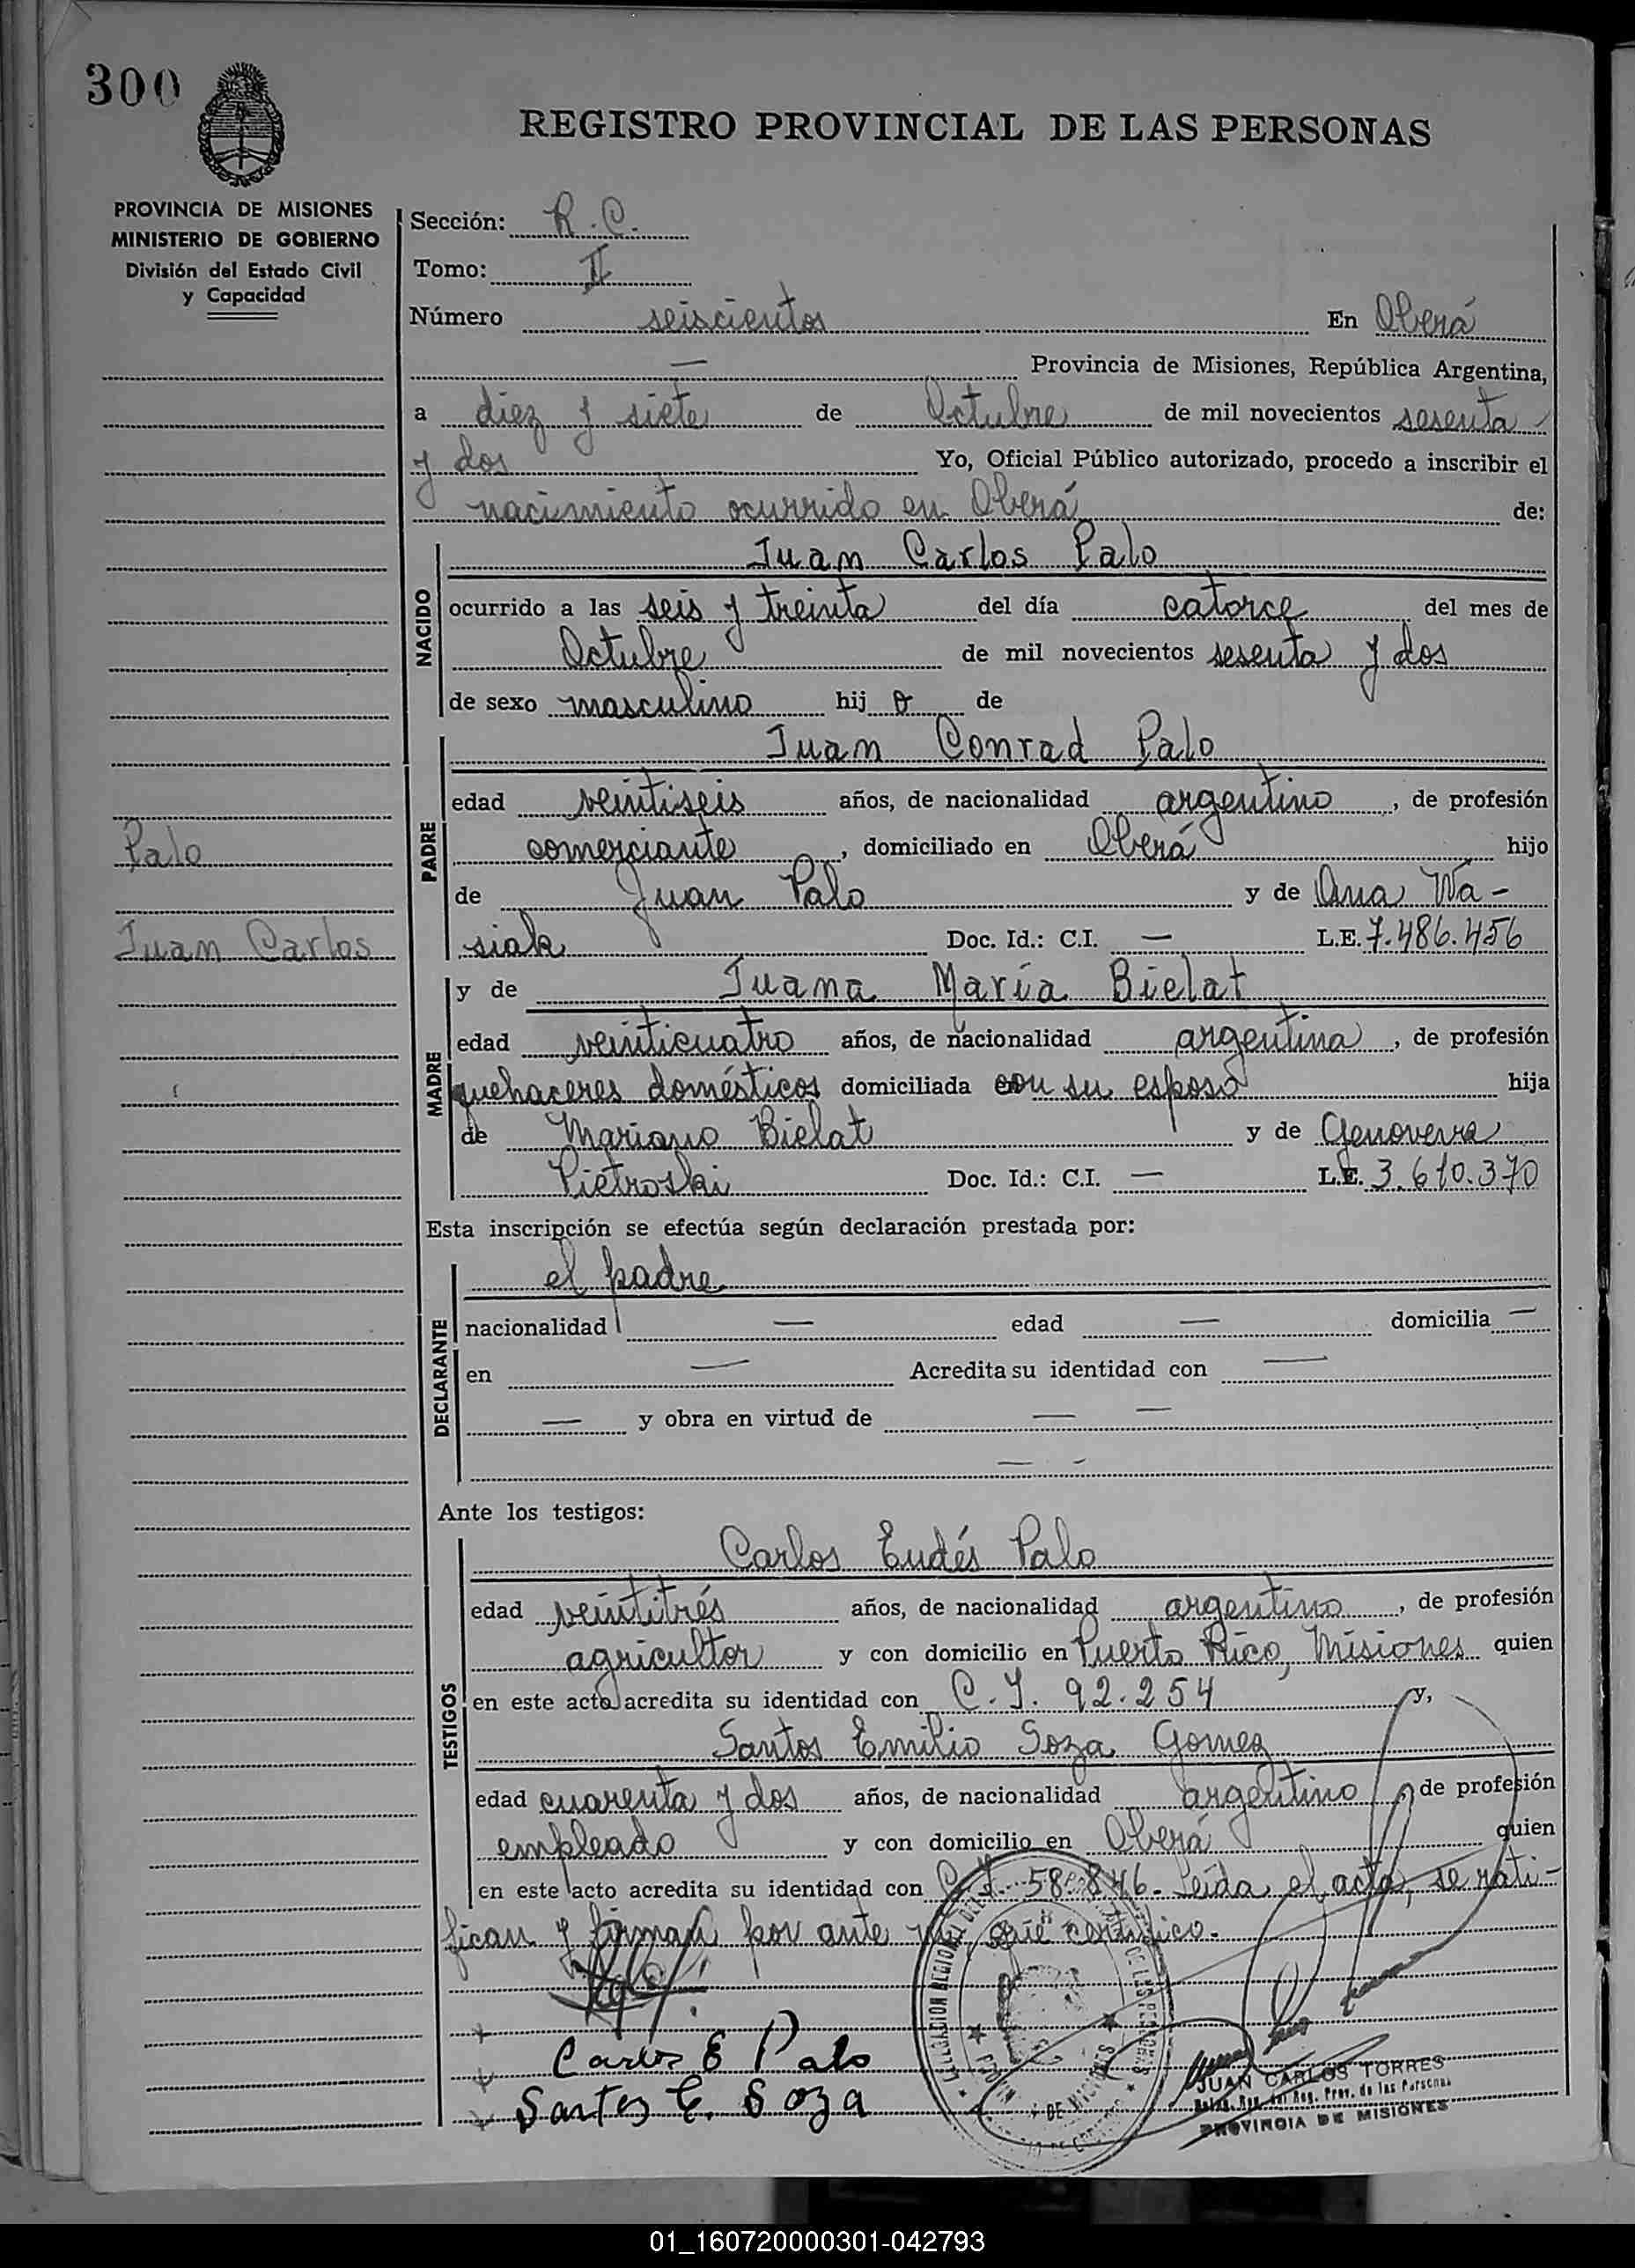 300
REGISTRO PROVINCIAL DE LAS PERSONAS
PROVINCIA DE MISIONES
MINISTERIO DE GOBIERNO
División del Estado Civil
y Capacidad
Sección: R. C.
Tomo: II
Número seiscientos En Oberá
— Provincia de Misiones, República Argentina,
a diez y siete de Octubre de mil novecientos sesenta
y dos Yo, Oficial Público autorizado, procedo a inscribir el
nacimiento ocurrido en Oberá de:
NACIDO
Juan Carlos Palo
ocurrido a las seis y treinta del día catorce del mes de
Octubre de mil novecientos sesenta y dos
de sexo masculino hij o de
PADRE
Juan Conrad Palo
edad veintiseis años, de nacionalidad argentino, de profesión
comerciante, domiciliado en Oberá hijo
Palo
de Juan Palo y de Ana Wa-
Juan Carlos
siak Doc. Id.: C.I. — L.E. 7.486.456
MADRE
y de Juana María Bielat
edad veinticuatro años, de nacionalidad argentina, de profesión
quehaceres domésticos domiciliada con su esposo hija
de Mariano Bielat y de Genoveva
Pietroski Doc. Id.: C.I. — L.E. 3.610.370
Esta inscripción se efectúa según declaración prestada por:
DECLARANTE
el padre
nacionalidad — edad — domicilia —
en — Acredita su identidad con —
— y obra en virtud de — —
— -
Ante los testigos:
TESTIGOS
Carlos Eudés Palo
edad veintitrés años, de nacionalidad argentino, de profesión
agricultor y con domicilio en Puerto Rico, Misiones quien
en este acto acredita su identidad con C. I. 92.254 y,
Santos Emilio Soza Gomez
edad cuarenta y dos años, de nacionalidad argentino, de profesión
empleado y con domicilio en Oberá quien
en este acto acredita su identidad con C. I. 58.846.- Leída el acta, se rati-
fican y firman por ante mí, que certifico.
Carlos E Palo
Santos E. Soza
JUAN CARLOS TORRES
Reg. Prov. de las Personas
PROVINCIA DE MISIONES
01_160720000301-042793